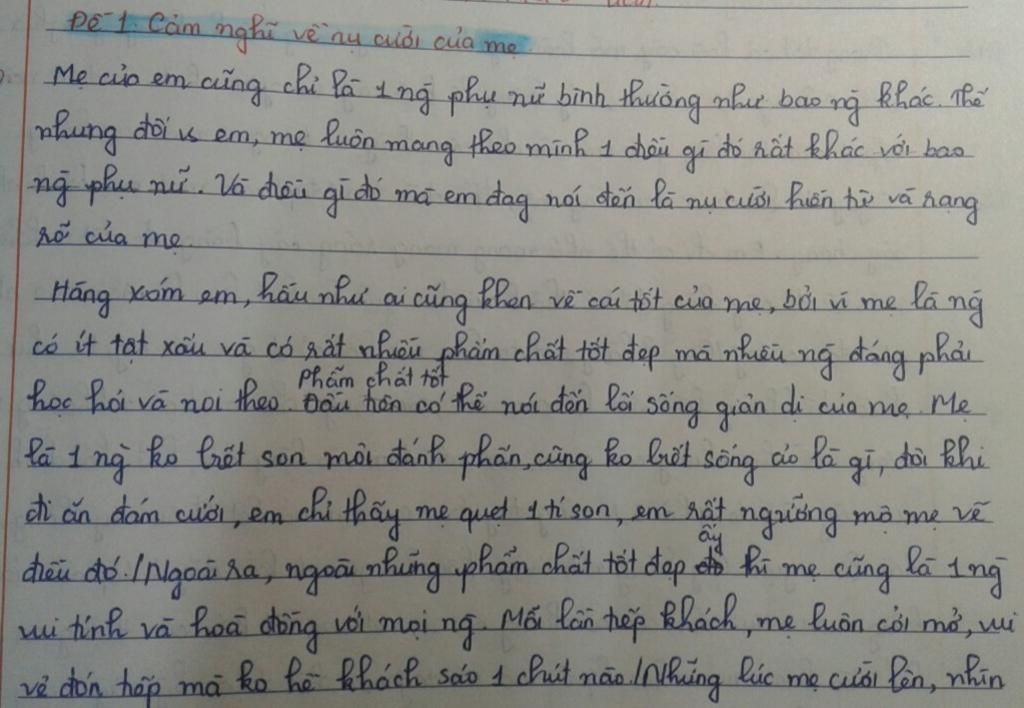 Đề 1. Cảm nghĩ về nụ cười của mẹ
Mẹ của em cũng chỉ là 1 ng phụ nữ bình thường như bao ng khác. Thế
nhưng đối vs em, mẹ luôn mang theo mình 1 điều gì đó rất khác với bao
ng phụ nữ. Và điều gì đó mà em đag nói đến là nụ cười hiền từ và rạng
rỡ của mẹ
Hàng xóm em, hầu như ai cũng khen về cái tốt của mẹ, bởi vì mẹ là ng
có ít tật xấu và có rất nhiều phẩm chất tốt đẹp mà nhiều ng đáng phải
phẩm chất tốt
học hỏi và noi theo. Đầu tiên có thể nói đến lối sống giản dị của mẹ. Mẹ
là 1 ng ko biết son môi đánh phấn, cũng ko biết sống ảo là gì, đôi khi
đi ăn đám cưới, em chỉ thấy mẹ quẹt 1 tí son, em rất ngưỡng mộ mẹ về
ấy
điều đó./Ngoài ra, ngoài những phẩm chất tốt đẹp đó thì mẹ cũng là 1 ng
vui tính và hoà đồng với mọi ng. Mỗi lần tiếp khách, mẹ luôn cởi mở, vui
vẻ đón tiếp mà ko hề khách sáo 1 chút nào./Những lúc mẹ cười lên, nhìn